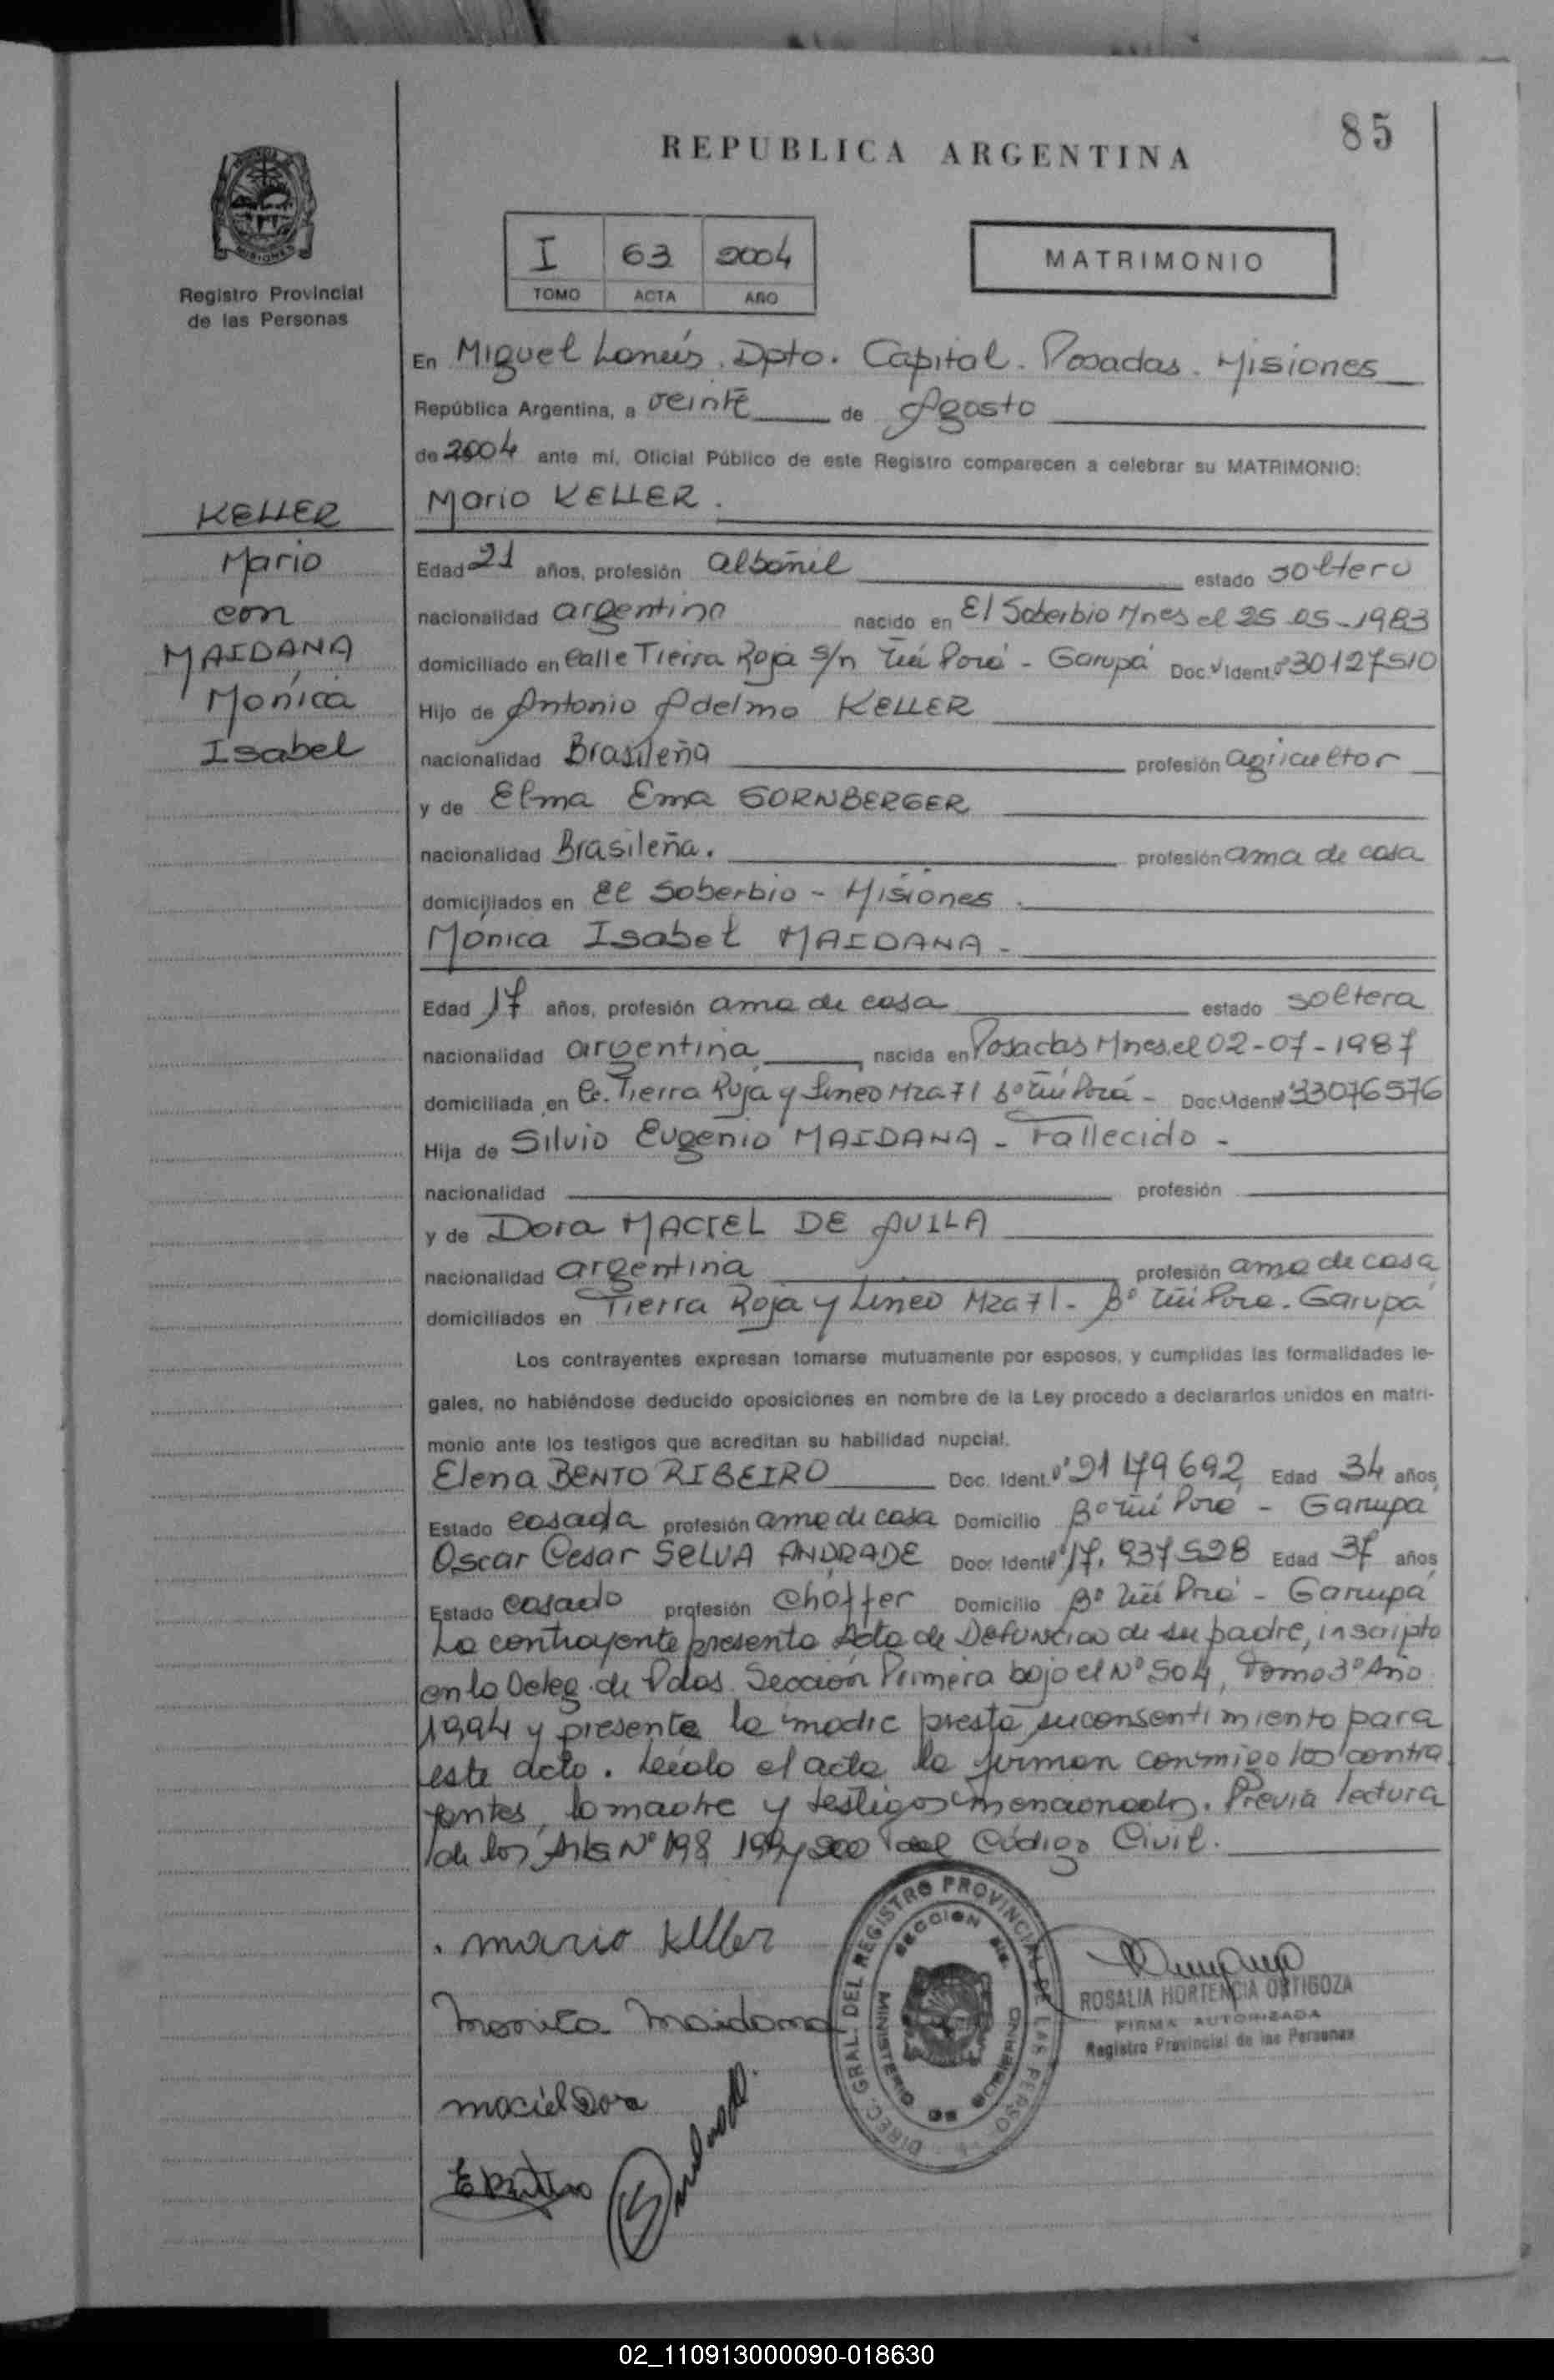 85
REPUBLICA ARGENTINA
I 63 2004
TOMO ACTA AÑO
MATRIMONIO
MISIONES
Registro Provincial
de las Personas
En Miguel Lanús. Dpto. Capital. Posadas. Misiones
República Argentina, a veinte de Agosto
de 2004 ante mí, Oficial Público de este Registro comparecen a celebrar su MATRIMONIO:
Mario KELLER.
KELLER
Mario
con
MAIDANA
Mónica
Isabel
Edad 21 años, profesión albañil estado soltero
nacionalidad argentino nacido en El Soberbio Mnes el 25-05-1983
domiciliado en Calle Tierra Roja s/n Porá - Garupá Doc. Ident. Nº 30127510
Hijo de Antonio Adelmo KELLER
nacionalidad Brasileña profesión agricultor
y de Elma Ema GORNBERGER
nacionalidad Brasileña. profesión ama de casa
domiciliados en El Soberbio - Misiones.
Mónica Isabel MAIDANA-
Edad 17 años, profesión ama de casa estado soltera
nacionalidad argentina nacida en Posadas Mnes. el 02-07-1987
domiciliada en C. Tierra Roja y Lineo Mza 71 Bº Porá - Doc. Ident. Nº 33076576
Hija de Silvio Eugenio MAIDANA - Fallecido -
nacionalidad profesión
y de Dora MACIEL DE AVILA
nacionalidad argentina profesión ama de casa
domiciliados en Tierra Roja y Lineo Mza 71 - Bº Pora - Garupá
Los contrayentes expresan tomarse mutuamente por esposos, y cumplidas las formalidades le-
gales, no habiéndose deducido oposiciones en nombre de la Ley procedo a declararlos unidos en matri-
monio ante los testigos que acreditan su habilidad nupcial.
Elena BENTO RIBEIRO Doc. Ident. Nº 21 179 692 Edad 34 años
Estado casada profesión ama de casa Domicilio Bº Porá - Garupá
Oscar Cesar SELVA ANDRADE Doc. Ident. Nº 17.937 528 Edad 37 años
Estado casado profesión choffer Domicilio Bº Porá - Garupá
La contrayente presenta Acta de Defunción de su padre, inscripto
en la Deleg. de Pdas. Sección Primera bajo el Nº 504, Tomo 3º Año
1994 y presente la madre presta su consentimiento para
este acto. Leída el acta la firman conmigo los contra
yentes, la madre y testigos mencionados. Previa lectura
de los Arts Nº 198, 199 y 200 del Código Civil.
mario Keller
Monica Maidana
maciel Dora
DIREC. GRAL. DEL REGISTRO PROVINCIAL DE LAS PERSO
MINISTERIO DE GOBIERNO
SECCION
ROSALIA HORTENCIA ORTIGOZA
FIRMA AUTORIZADA
Registro Provincial de las Personas
02_110913000090-018630